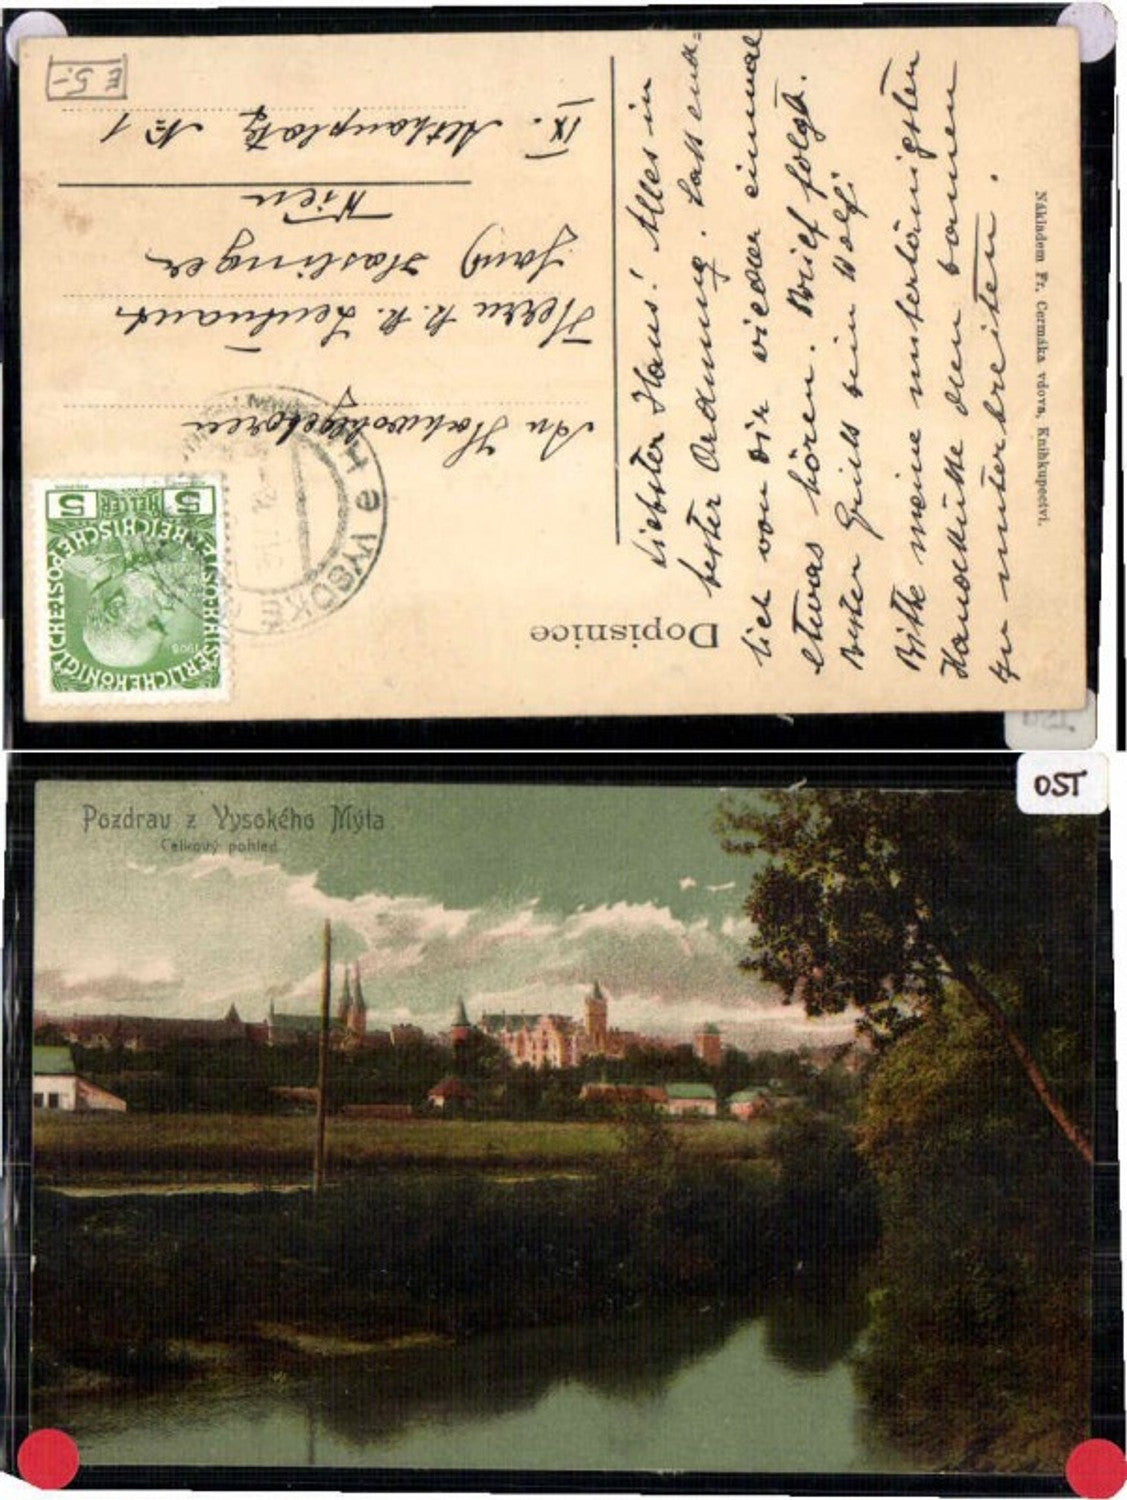 Dopisnice
5 HELLER 5
KAISERLICHEKÖNIGLICHE ÖSTERREICHISCHE POST
1908
VYSOKÉ
An Hochwohlgeboren
Herrn k. k. Leutnant
Hans Haslinger
Wien
IX. Althanplatz No 1
5.-
Liebster Hans! Alles in
bester Ordnung. Lass end-
lich von Dir wieder einmal
etwas hören. Brief folgt.
Besten Gruß Dein Wolf
Bitte meine untertänigsten
Handküsse den Damen
zu unterbreiten.
Nákladem Fr. Čermáka vdova, Knihkupectví.
OST
Pozdrav z Vysokého Mýta
Celkový pohled